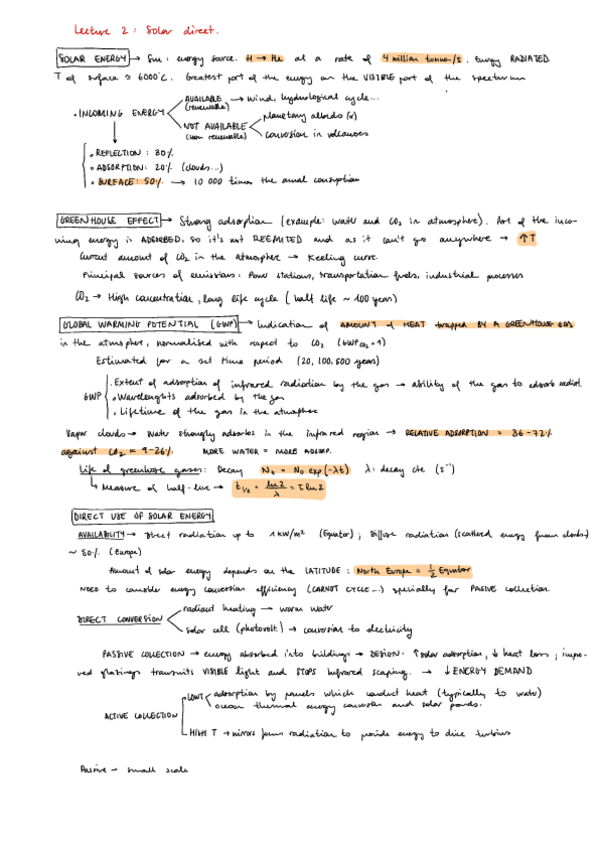 Lecture 2: Solar direct.
SOLAR ENERGY → Sun: energy source. H → He at a rate of 4 million tonnes/s. Energy RADIATED.
T of surface ≈ 6000°C. Greatest part of the energy on the VISIBLE part of the spectrum
• INCOMING ENERGY
AVAILABLE (renewable) → Wind, hydrological cycle...
NOT AVAILABLE (non renewable)
planetary albedo (α)
conversion in volcanoes
• REFLECTION: 30%
• ADSORPTION: 20% (clouds...)
• SURFACE: 50% → 10 000 times the annual consumption
GREENHOUSE EFFECT → Strong adsorption (example: water and CO2 in atmosphere). Part of the inco-
ming energy is ADSORBED, so it's not REEMITED and as it can't go anywhere → ↑T
Current amount of CO2 in the atmosphere → Keeling curve.
Principal sources of emissions: Power stations, transportation fuels, industrial processes
CO2 → High concentration, long life cycle (half life ~ 100 years)
GLOBAL WARMING POTENTIAL (GWP) → Indication of AMOUNT of HEAT trapped BY A GREENHOUSE GAS
in the atmosphere, normalised with respect to CO2 (GWP CO2 = 1)
Estimated for a set time period (20, 100, 500 years)
GWP
• Extent of adsorption of infrared radiation by the gas → ability of the gas to adsorb radiat.
• Wavelengths adsorbed by the gas
• Lifetime of the gas in the atmosphere
Vapor clouds → Water strongly adsorbs in the infrared region → RELATIVE ADSORPTION = 36-72%
against CO2 = 9-26% MORE WATER = MORE ADSORP.
Life of greenhouse gases: Decay Nt = N0 exp(-λt) λ: decay cte (s⁻¹)
↳ Measure of half-live → t1/2 = ln2/λ = τ ln2
DIRECT USE OF SOLAR ENERGY
AVAILABILITY → Direct radiation up to 1 kW/m² (Equator); Diffuse radiation (scattered energy from clouds)
~ 50% (Europe)
Amount of solar energy depends on the LATITUDE: North Europe = 1/2 Equator
NEED to consider energy conversion efficiency (CARNOT CYCLE...) specially for PASIVE collection.
DIRECT CONVERSION
radiant heating → warm water
solar cell (photovolt) → conversion to electricity
PASSIVE COLLECTION → energy absorbed into buildings → DESIGN. ↑ solar adsorption, ↓ heat loss; impro-
ved glazings transmits VISIBLE light and STOPS infrared scaping. → ↓ ENERGY DEMAND
ACTIVE COLLECTION
LOW T
adsorption by panels which conduct heat (typically to water)
ocean thermal energy conversion and solar ponds.
HIGH T → mirrors focus radiation to provide energy to drive turbines
Passive → small scale